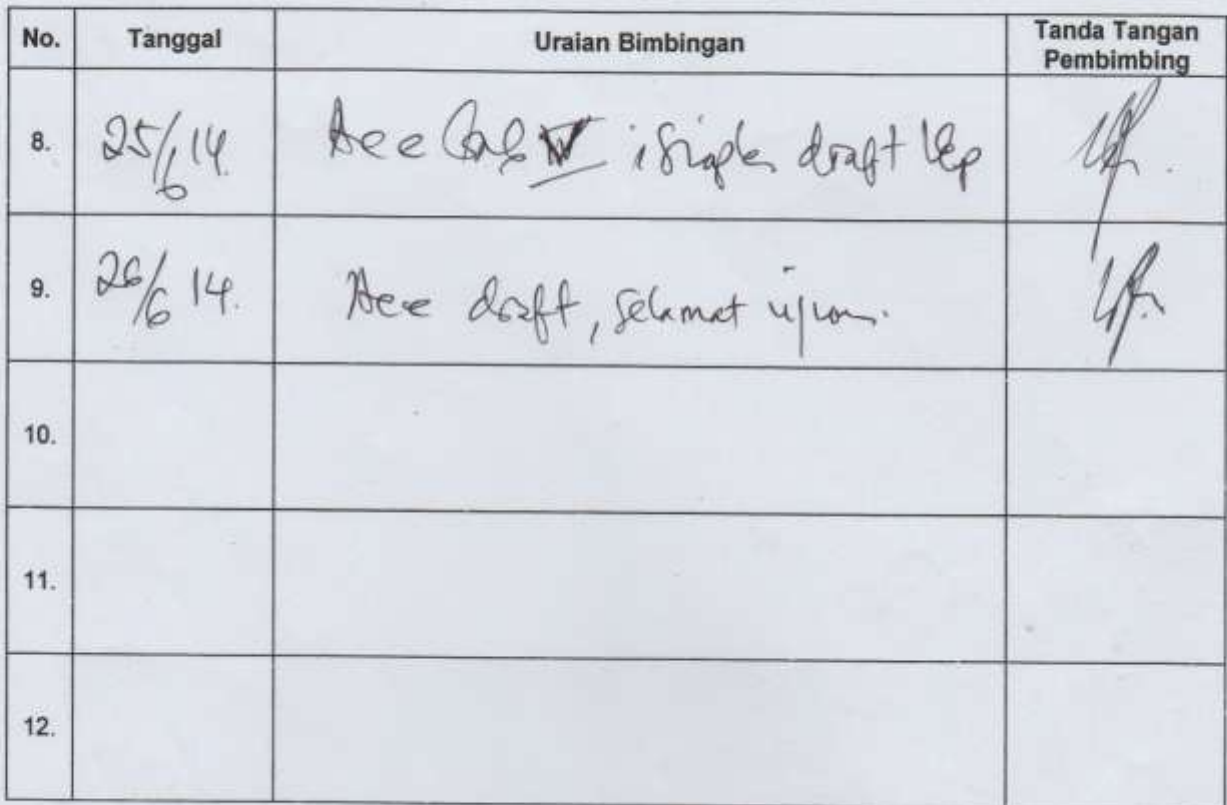 No. Tanggal Uraian Bimbingan Tanda Tangan Pembimbing
8. 25/6 14. Acc Bab IV siapkan draft lkp
9. 26/6 14. Acc draft, selamat ujian.
10.
11.
12.